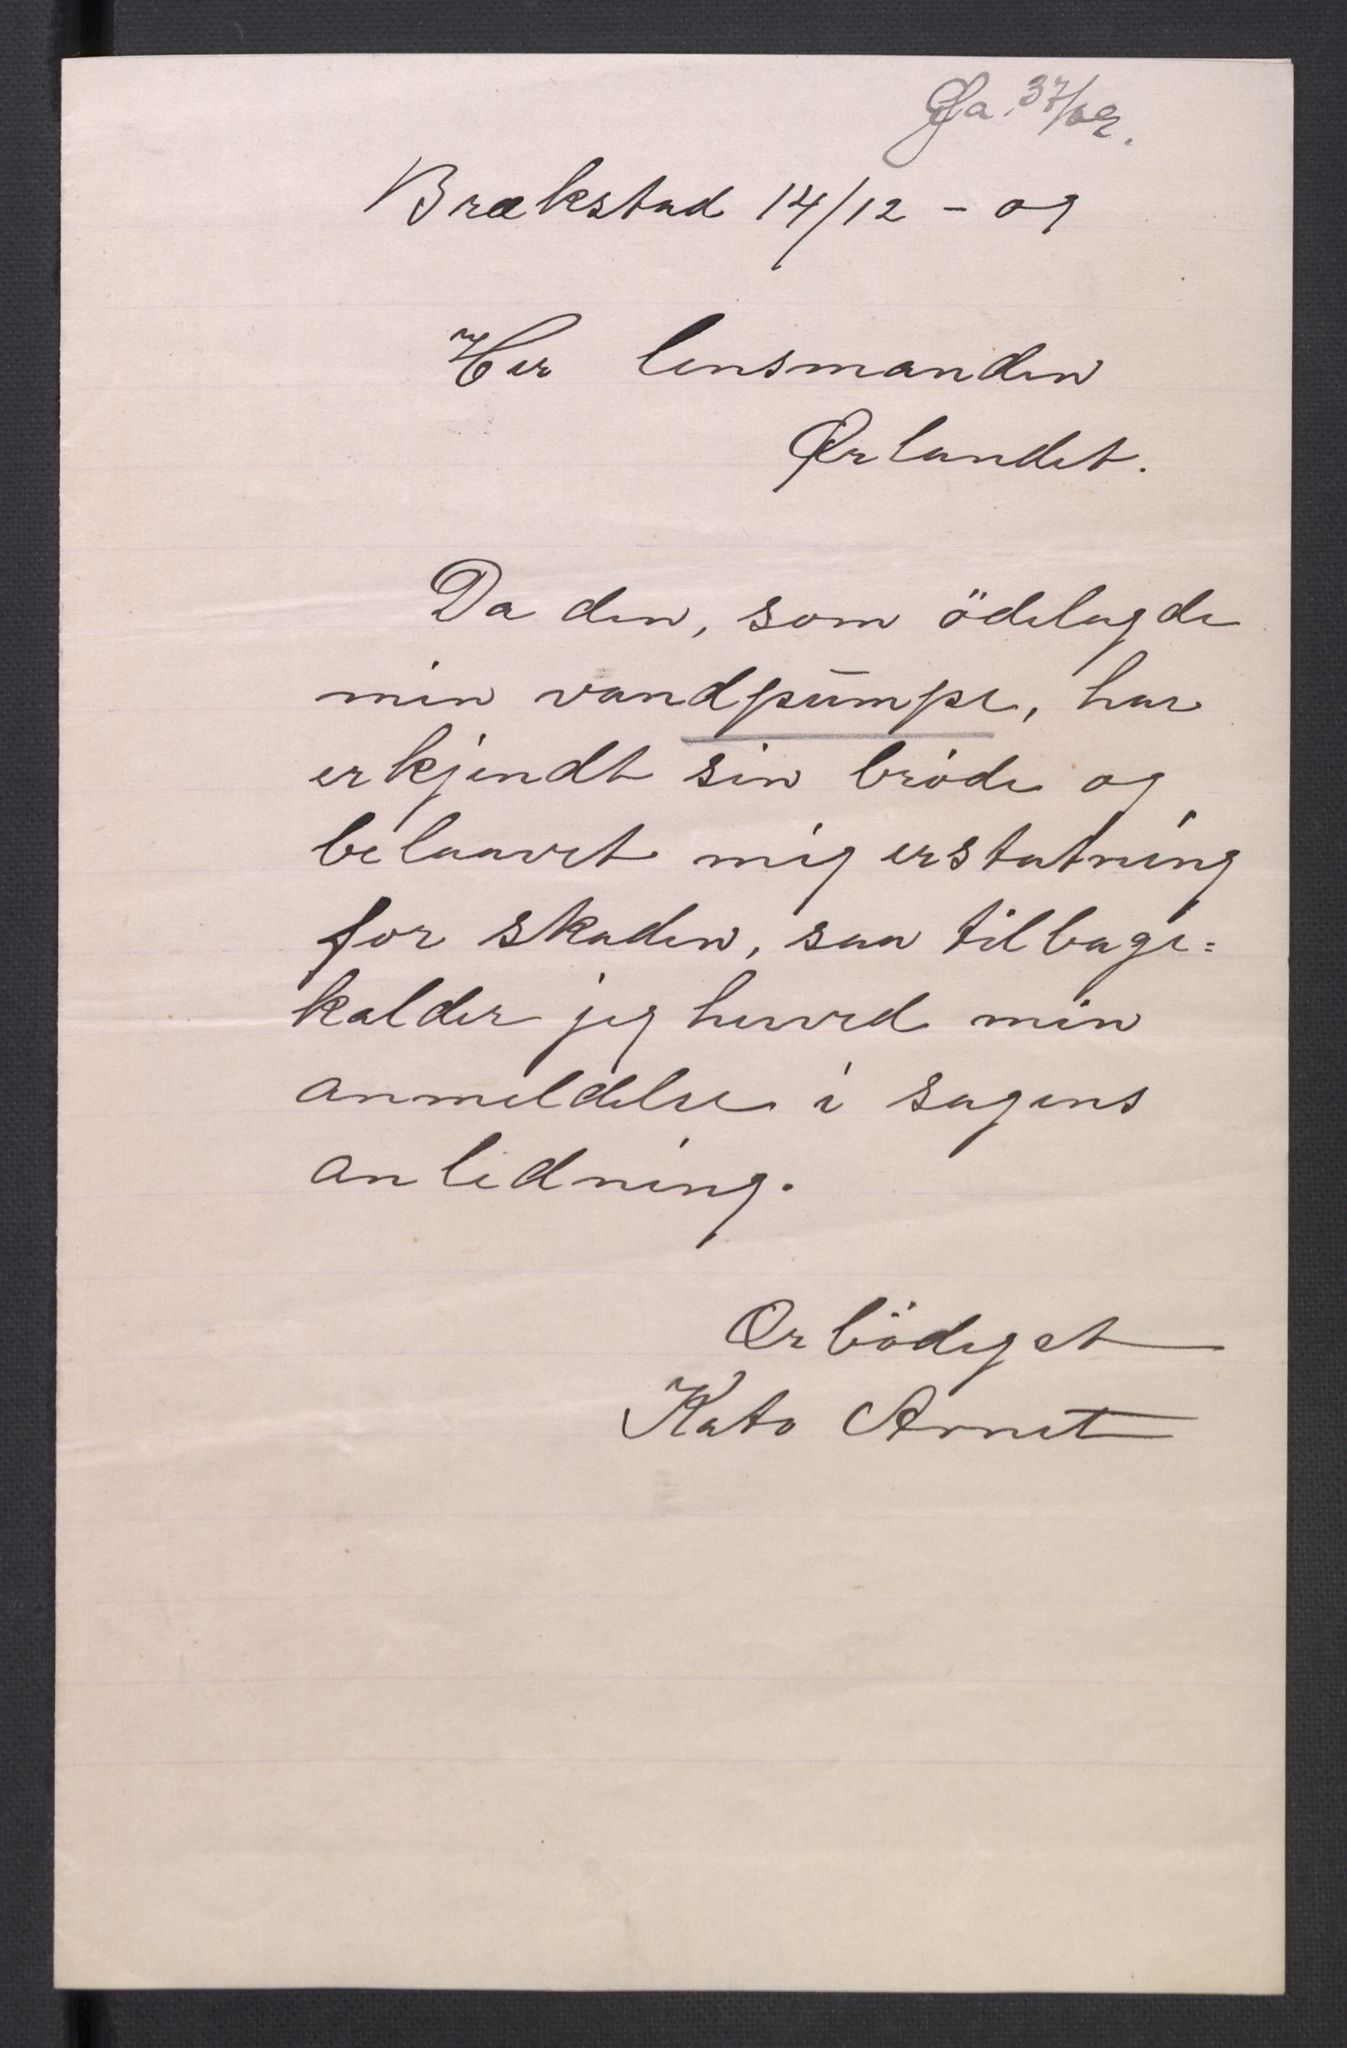 37/09.
Brækstad 14/12 - 09
Her lensmanden
Ørlandet.
Da den, som ödelagde
min vandpumpe, har
erkjendt sin bröde og
belaavet mig erstatning
for skaden, saa tilbage=
kalder jeg herved min
anmeldelse i sagens
anledning.
Ærbödigst
Kato Arnet